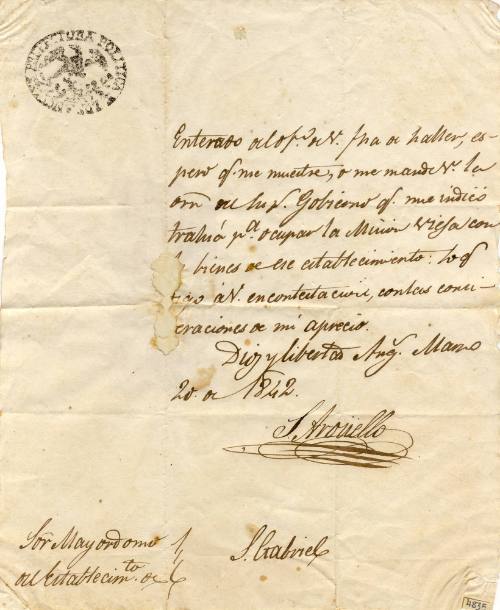 PREFECTURA POLITICA
Enterado del of.º de V. fha de haller, es-
pero q.e me muestre, o me mande V. la
orn del Sup.r Gobierno q.e me indicó
trahia p.a ocupar la Micion Vieja con
bienes de ese establecimiento: lo q.e
digo a V. en contestacion, con las conci-
deraciones de mi aprecio.
Dios y libertad Ang.s Marzo
20. de 1842.
S. Arguello
Sõr Mayordomo
del establecim.to de S. Gabriel
4835